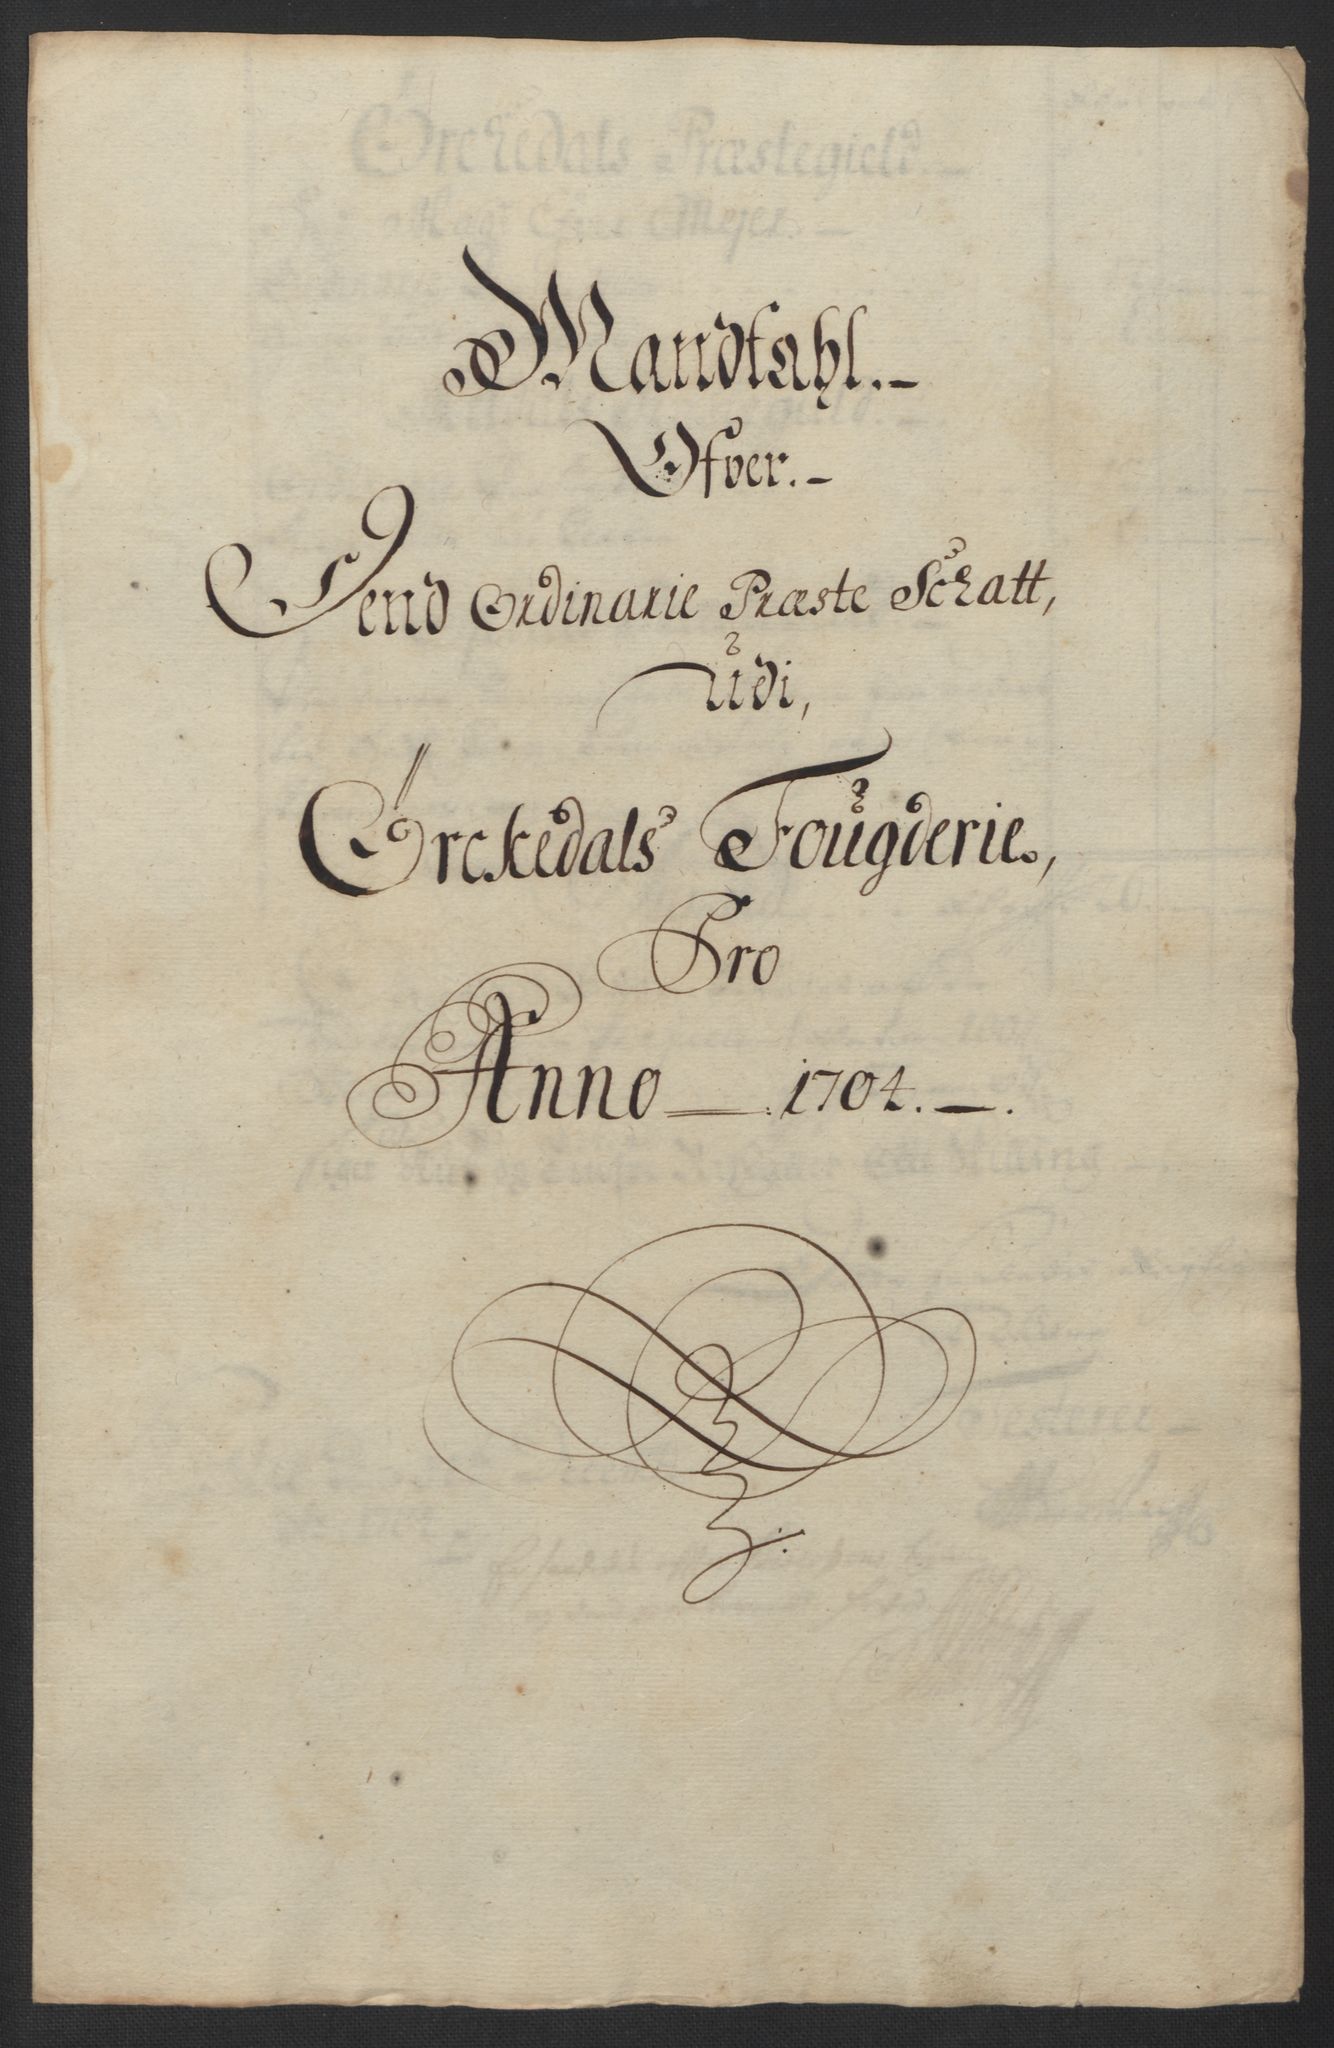 Mandtahl.-
Ofver.-
Dend Ordinarie Præste Schatt,
udi,
Örckedals Fougderie,
Pro
Anno — 1704. —.